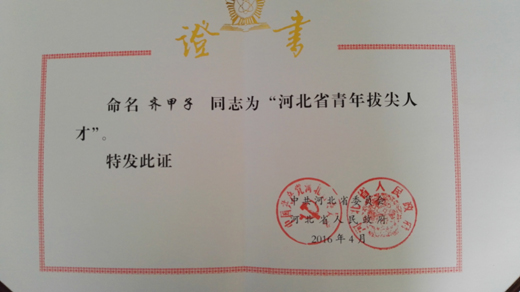 證書
命名 齐甲子 同志为“河北省青年拔尖人
才”。
特发此证
中共河北省委员会
河北省人民政府
2016年4月